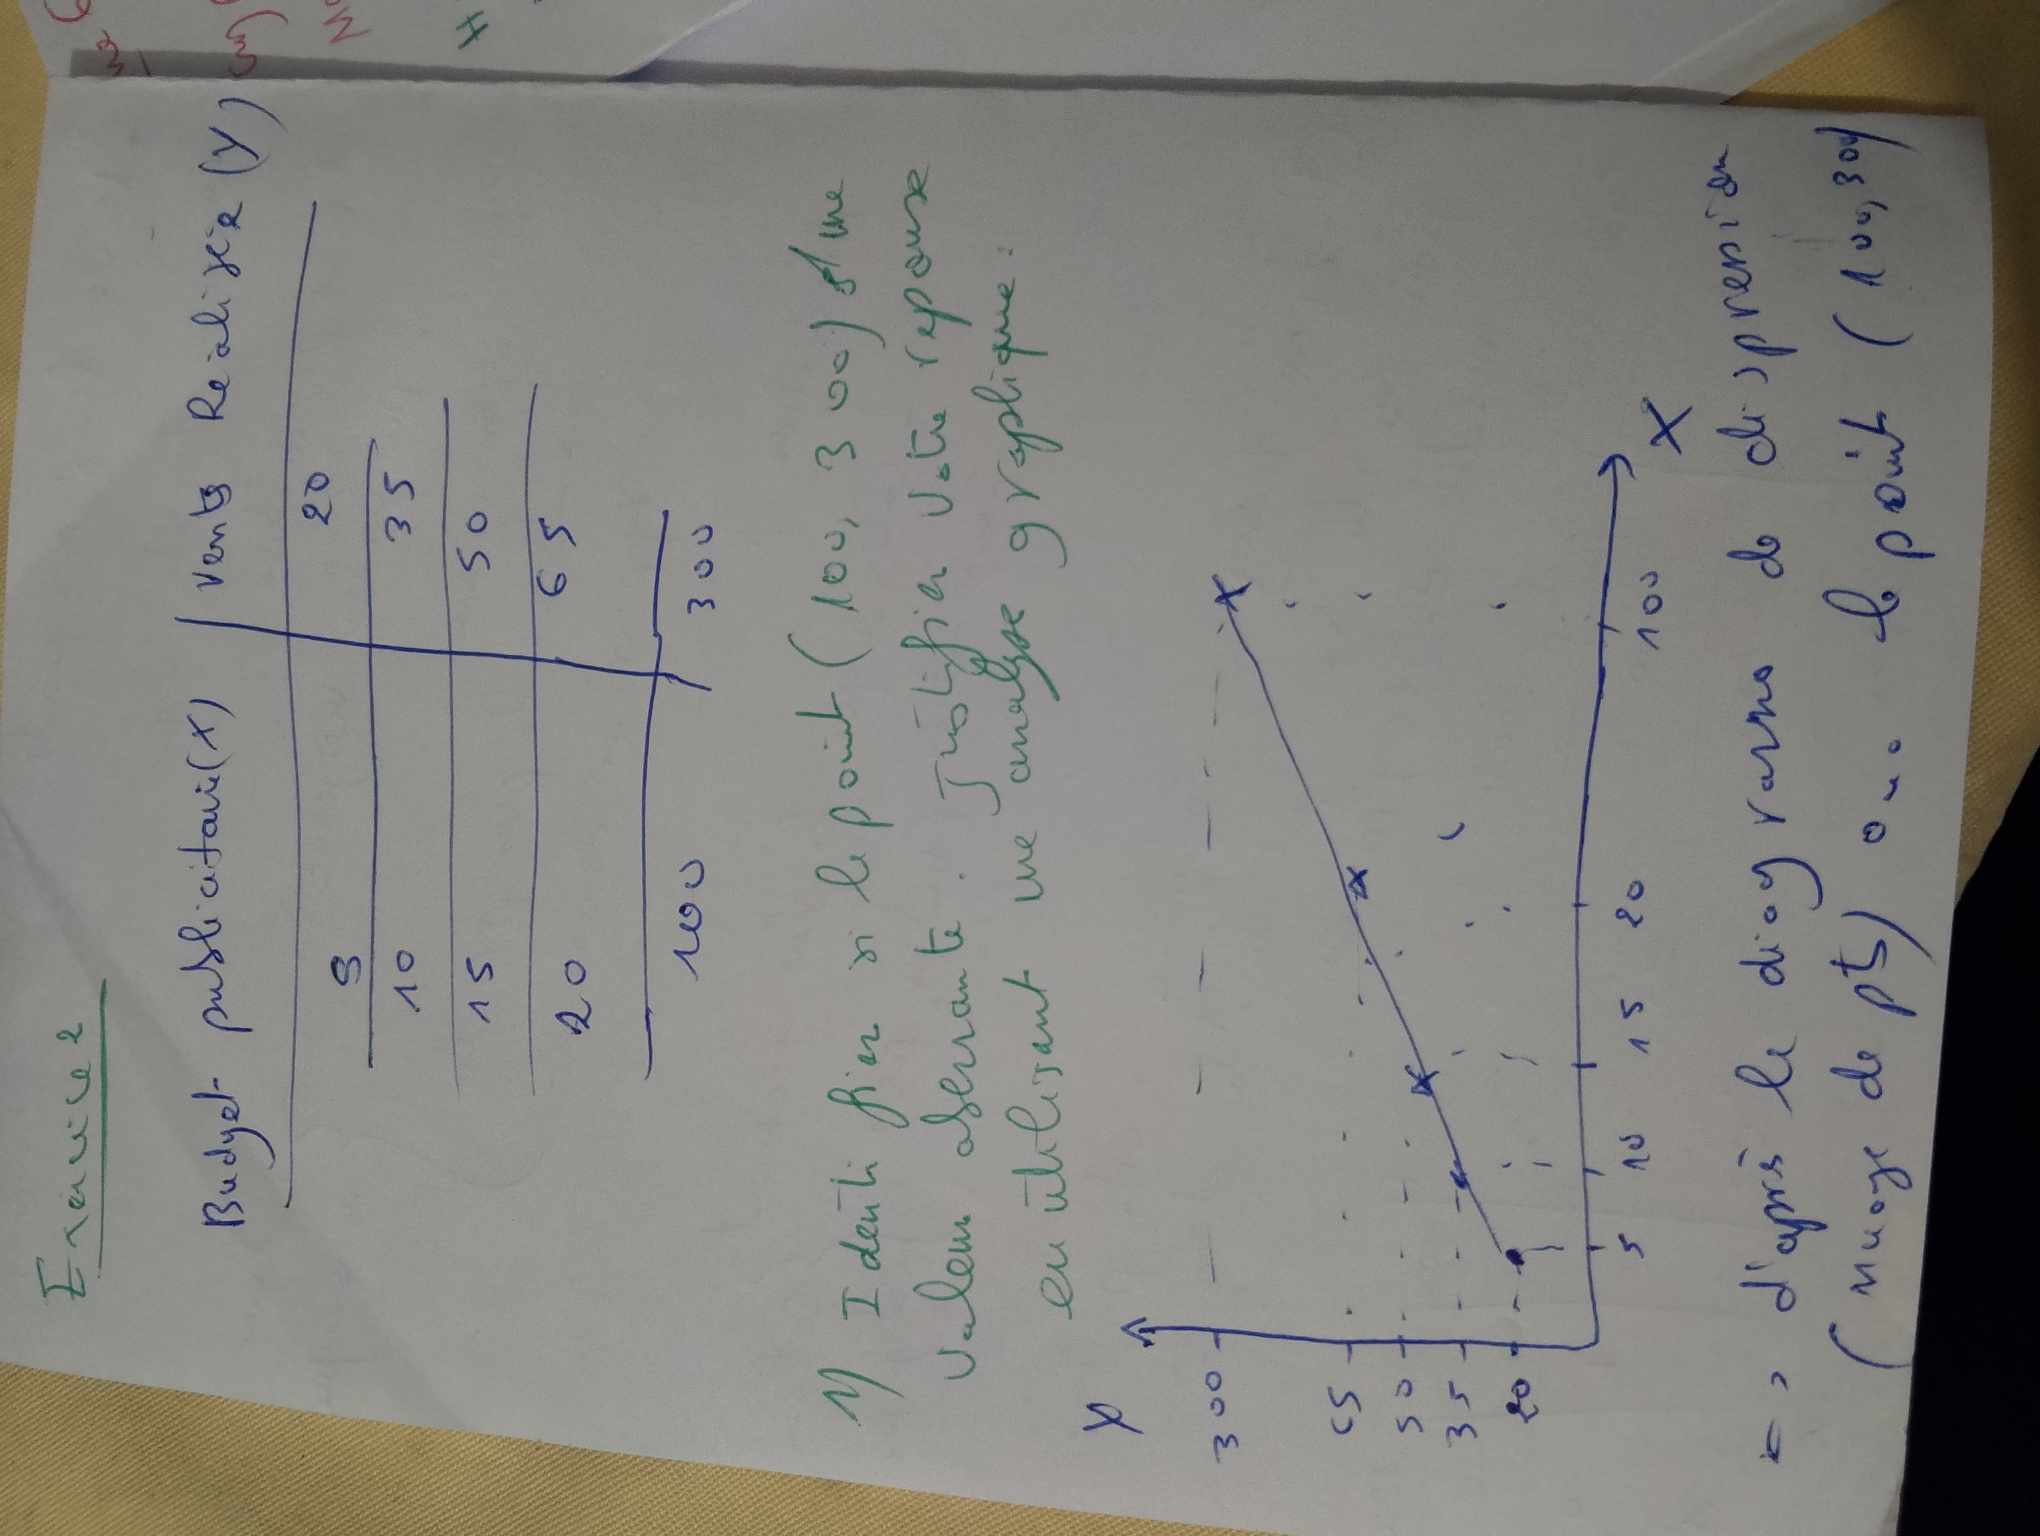 Exercice 2
Budget publicitaire (X) | Vents Realisée (Y)
5 | 20
10 | 35
15 | 50
20 | 65
100 | 300
1) Identifier si le point (100, 300) est une
valeur aberrante. justifier votre reponse
en utilisant une analyse graphique.
Y
300
65
50
35
20
5 10 15 20 100
X
=> d'après le diagramme de dispression
(nuage de pts) on a le point (100, 300)